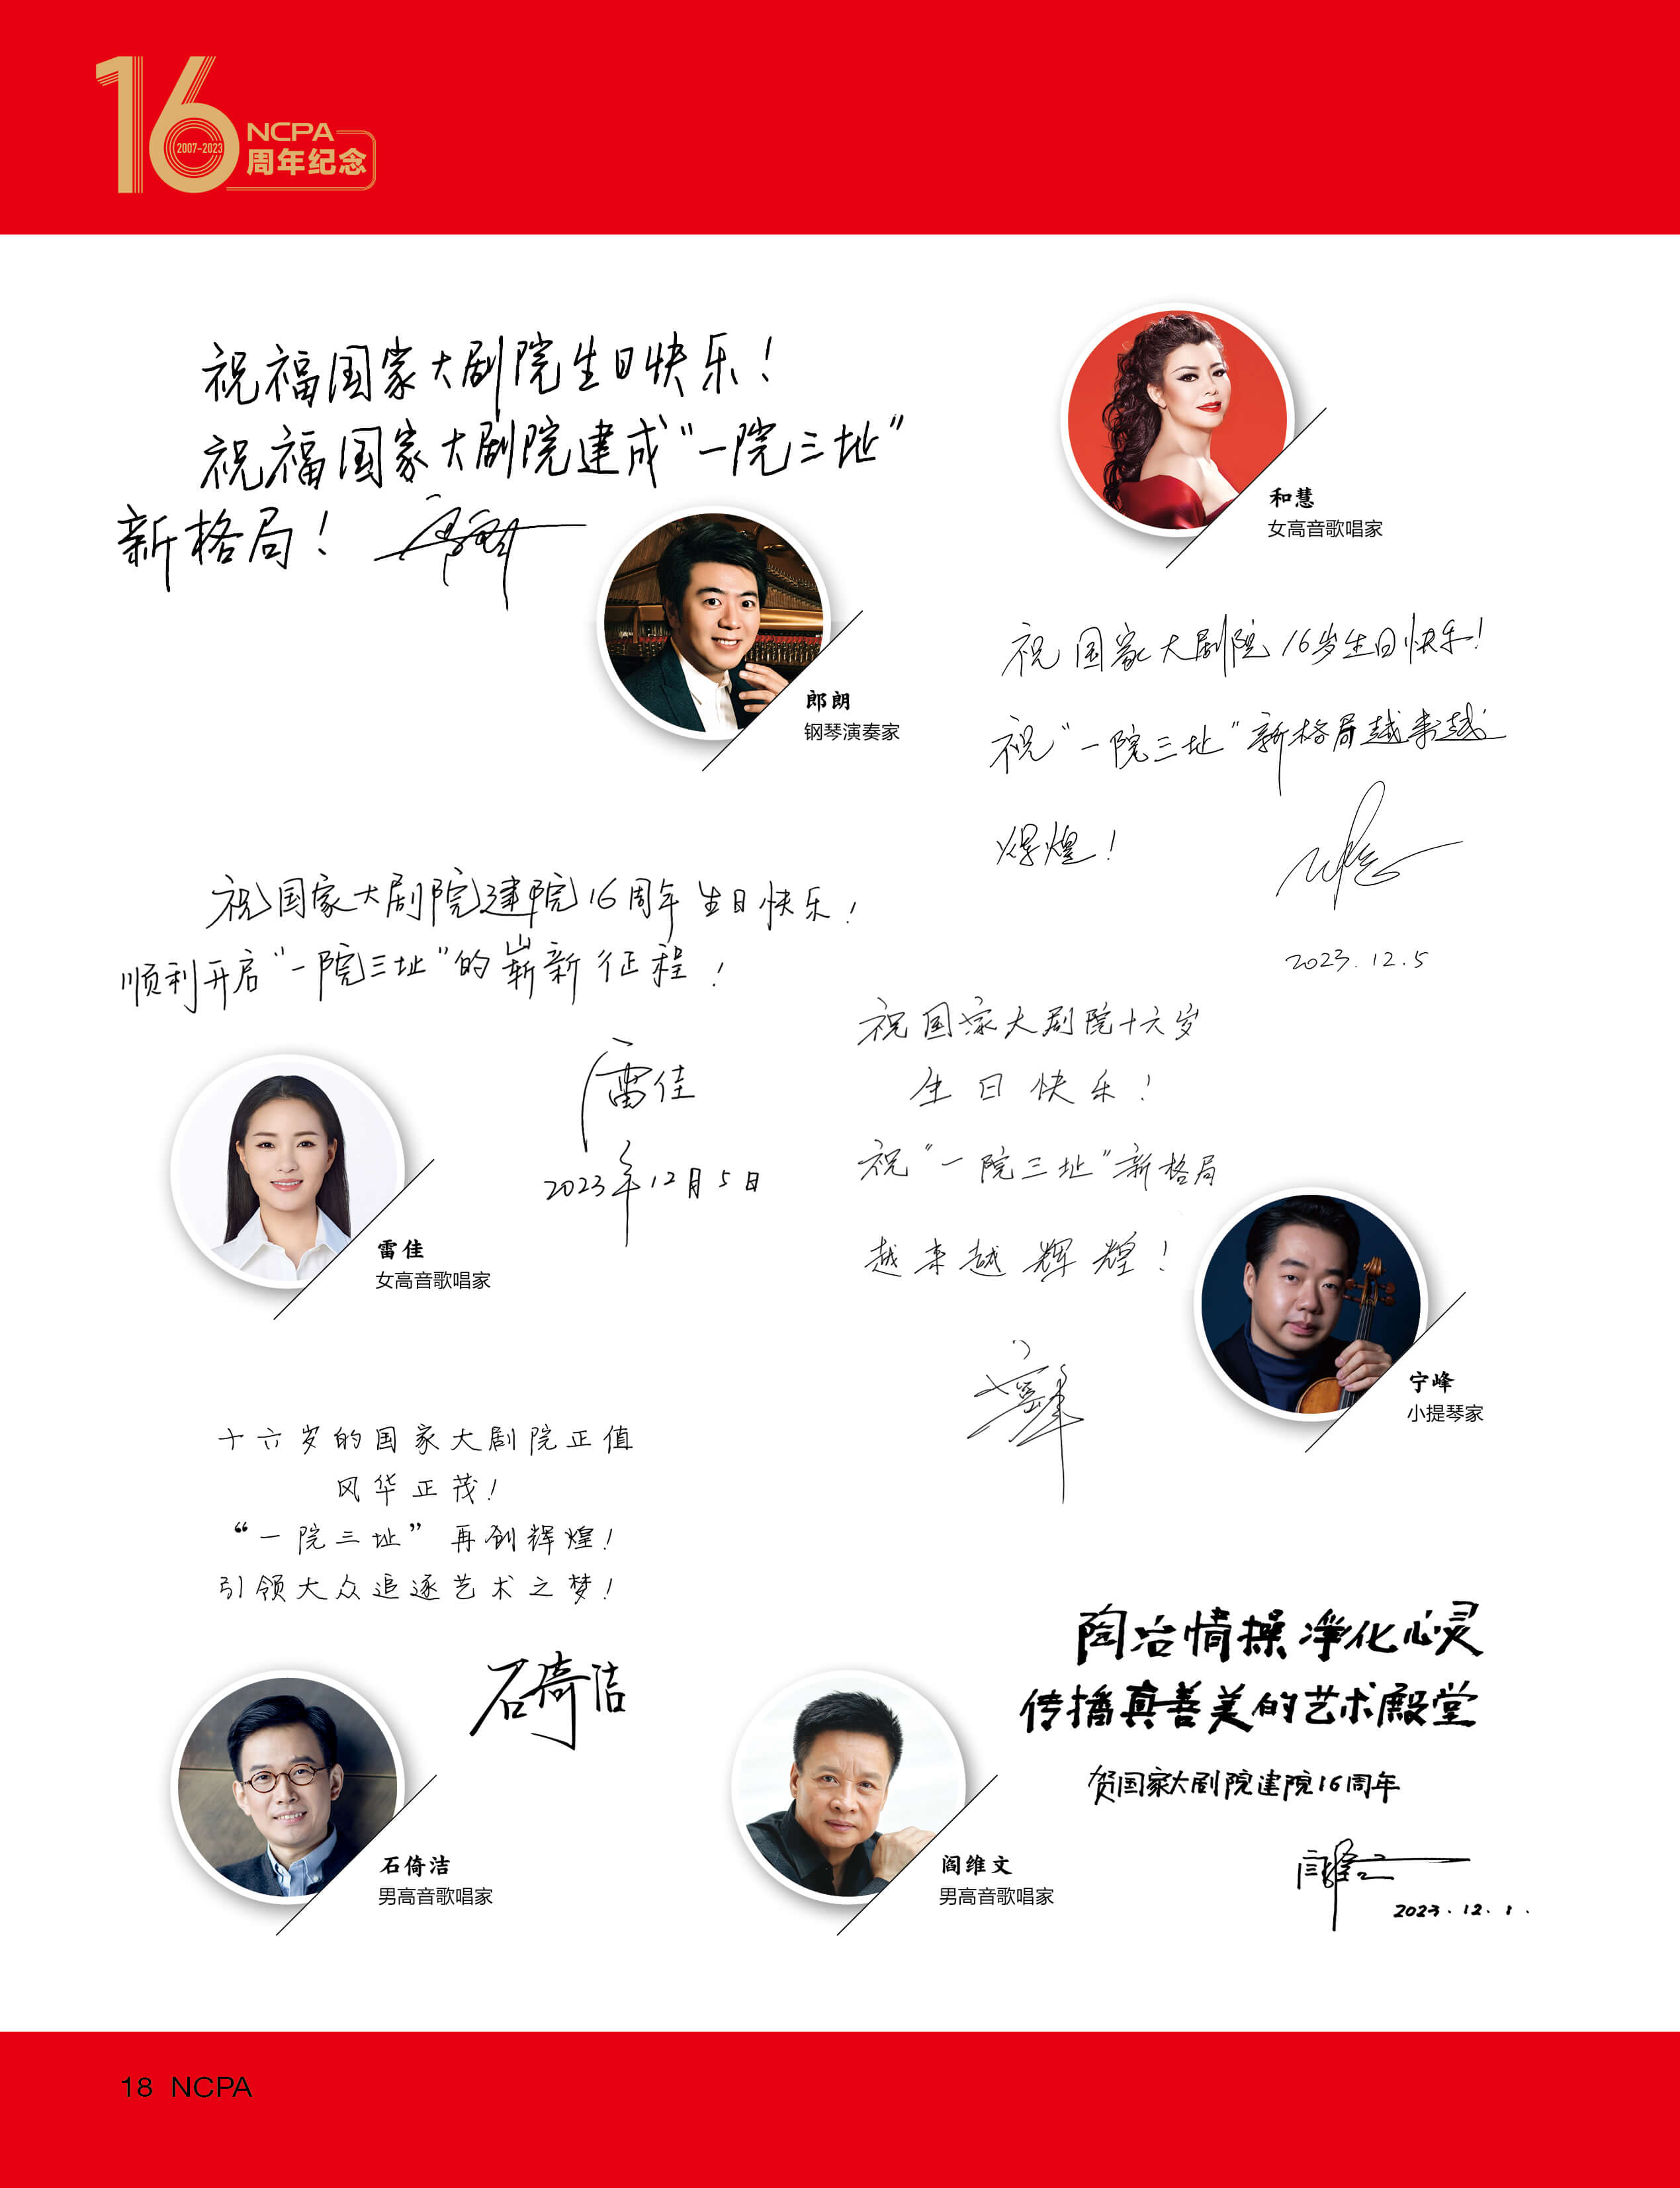 16
2007-2023
NCPA
周年纪念
祝福国家大剧院生日快乐！
祝福国家大剧院建成“一院三址”
新格局！
郎朗
钢琴演奏家
和慧
女高音歌唱家
祝国家大剧院16岁生日快乐！
祝“一院三址”新格局越来越
辉煌！
2023.12.5
祝国家大剧院建院16周年生日快乐！
顺利开启“一院三址”的崭新征程！
雷佳
2023年12月5日
雷佳
女高音歌唱家
祝国家大剧院十六岁
生日快乐！
祝“一院三址”新格局
越来越辉煌！
宁峰
小提琴家
十六岁的国家大剧院正值
风华正茂！
“一院三址”再创辉煌！
引领大众追逐艺术之梦！
石倚洁
石倚洁
男高音歌唱家
陶冶情操 净化心灵
传播真善美的艺术殿堂
贺国家大剧院建院16周年
阎维文
2023.12.1.
阎维文
男高音歌唱家
18 NCPA